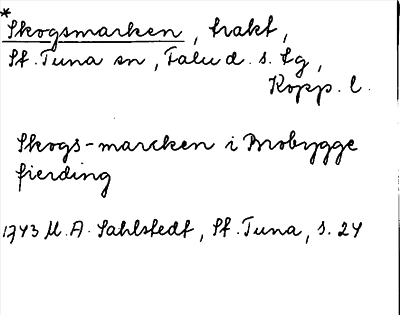 *
Skogsmarken, trakt,
St. Tuna sn, Falu d. s. Lg,
Kopp. l.
Skogs-marcken i Brobygge
fierding
1743 M. A. Sahlstedt, St. Tuna, s. 24